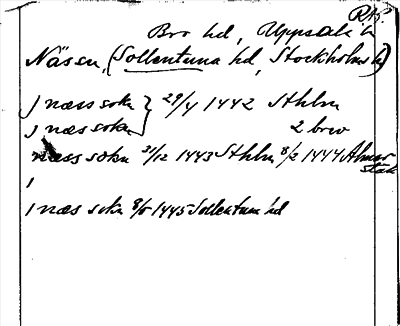 RAp.
Bro hd, Uppsala l
Näs sn, (Sollentuna hd, Stockholms l)
j næss sokn } 29/4 1442 Sthlm
j næss sokn 2 brev
næss sokn 31/12 1443 Sthlm 8/2 1444 Almar
stäk
j næs sokn 8/5 1445 Sollentuna hd